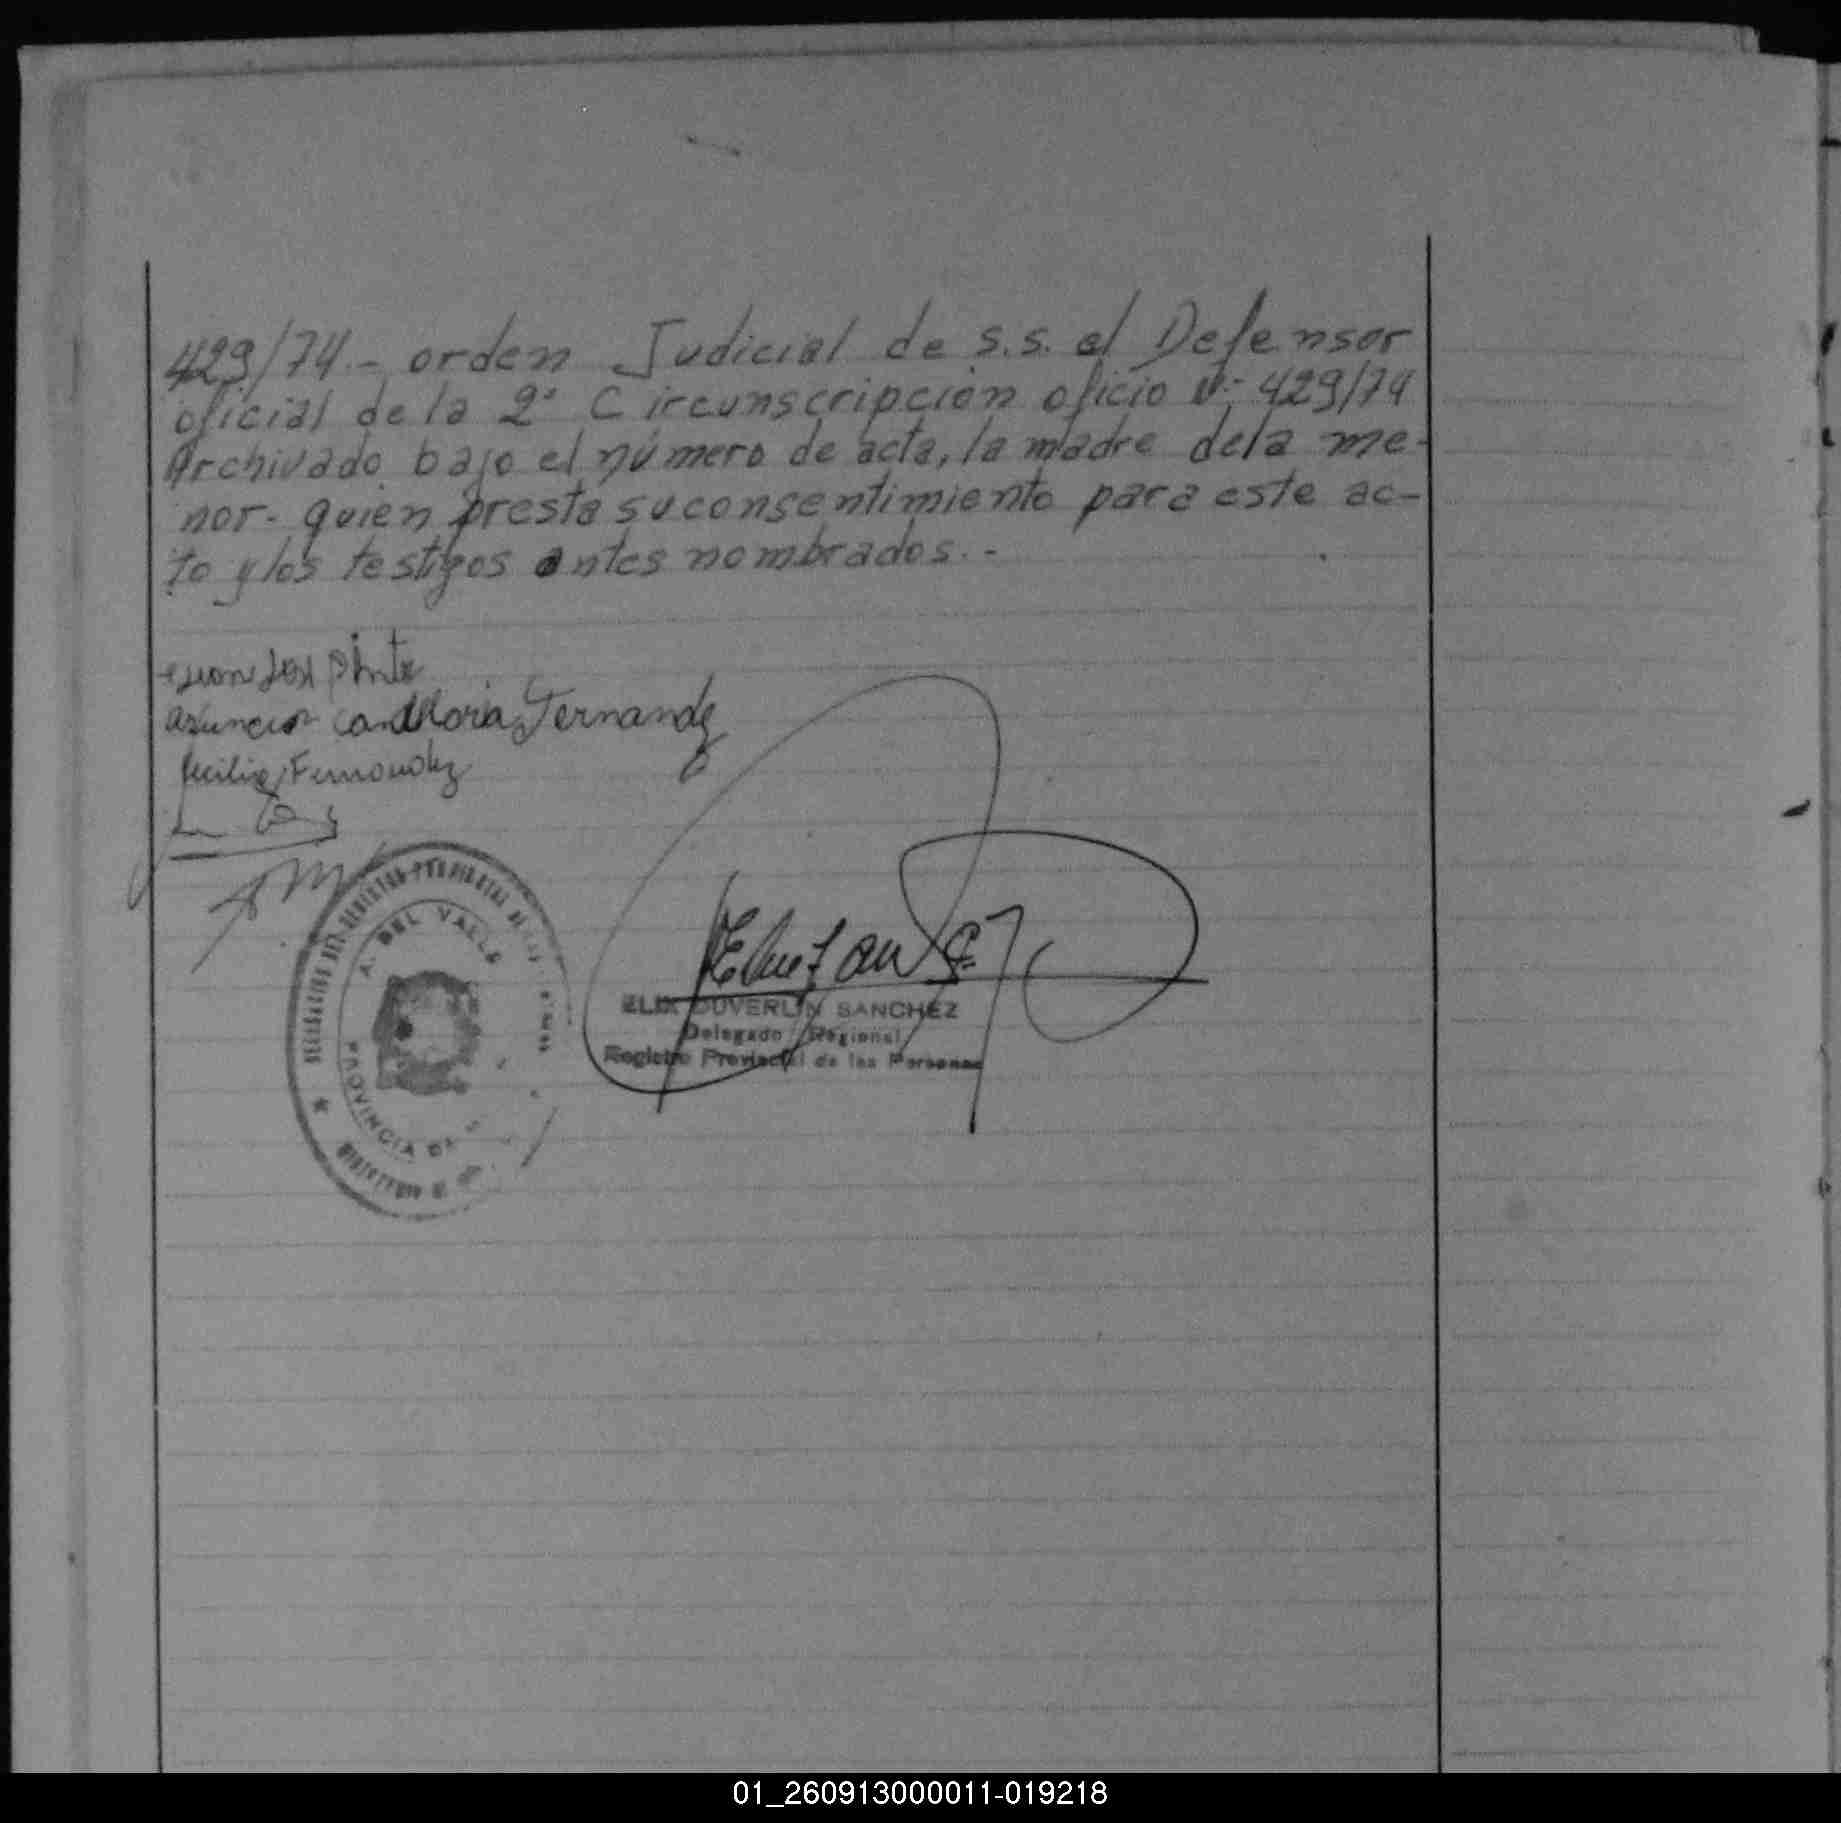 429/74.- orden Judicial de s.s. el Defensor
oficial de la 2º Circunscripción oficio Nº 429/74
Archivado bajo el número de acta, la madre dela me-
nor- quien presta su consentimiento para este ac-
to y los testigos antes nombrados.-
Asuncion Candeloria Fernandez
Cecilia Fernandez
A. DEL VALLE
PROVINCIA DE
ELIX DUVERLIN SANCHEZ
Delegado Regional
Registro Provincial de las Personas
01_260913000011-019218